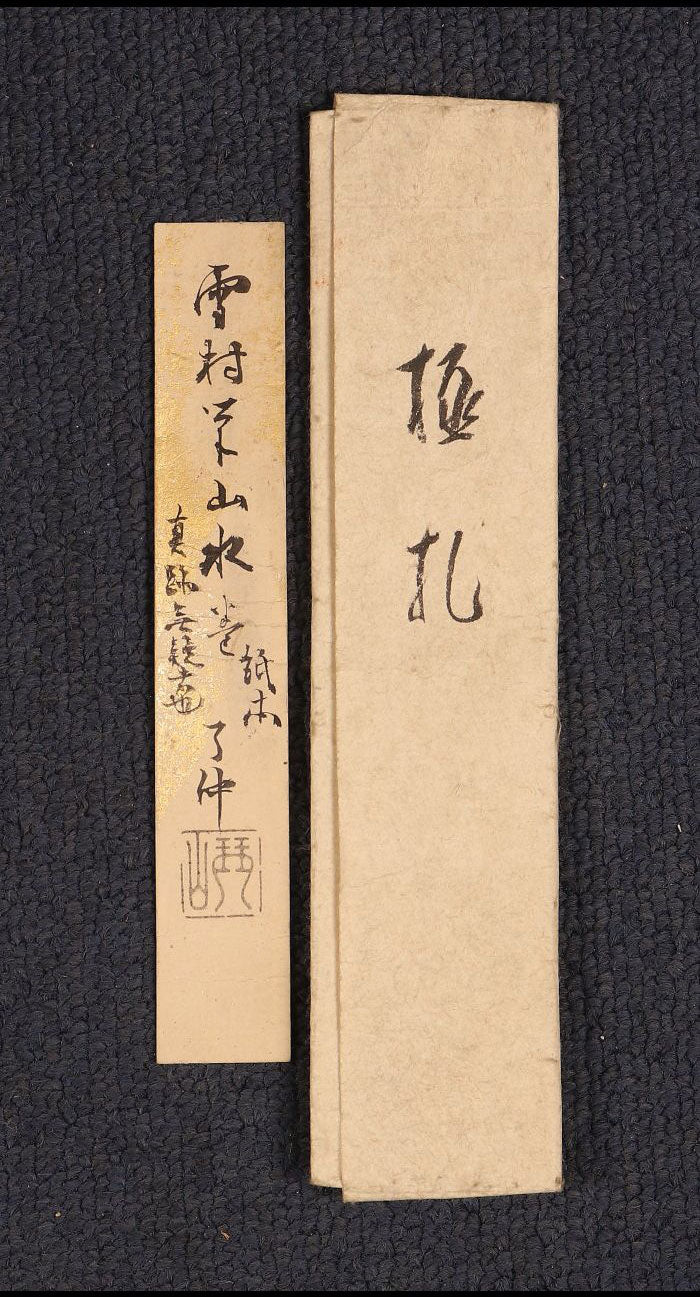 極札
雪村筆山水巻
紙本
真跡無疑者也
了仲
琴山